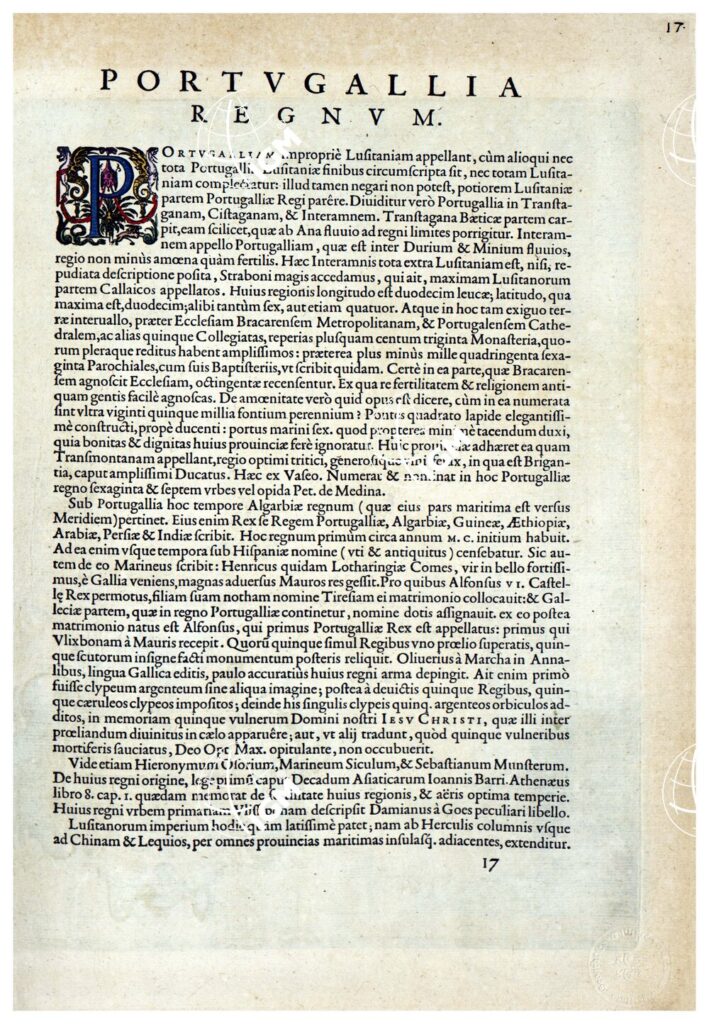 17.
PORTVGALLIA
REGNVM.
PORTVGALLIAM impropriè Luſitaniam appellant, cùm alioqui nec
tota Portugallia Luſitaniæ finibus circumſcripta ſit, nec totam Luſita-
niam complectatur: illud tamen negari non poteſt, potiorem Luſitaniæ
partem Portugalliæ Regi parêre. Diuiditur verò Portugallia in Tranſta-
ganam, Ciſtaganam, & Interamnem. Tranſtagana Bæticæ partem car-
pit, eam ſcilicet, quæ ab Ana fluuio ad regni limites porrigitur. Interam-
nem appello Portugalliam, quæ eſt inter Durium & Minium fluuios,
regio non minùs amœna quàm fertilis. Hæc Interamnis tota extra Luſitaniam eſt, niſi, re-
pudiata deſcriptione poſita, Straboni magis accedamus, qui ait, maximam Luſitanorum
partem Callaicos appellatos. Huius regionis longitudo eſt duodecim leucæ; latitudo, qua
maxima eſt, duodecim; alibi tantùm ſex, aut etiam quatuor. Atque in hoc tam exiguo ter-
ræ interuallo, præter Eccleſiam Bracarenſem Metropolitanam, & Portugalenſem Cathe-
dralem, ac alias quinque Collegiatas, reperias pluſquam centum triginta Monaſteria, quo-
rum pleraque reditus habent ampliſſimos: præterea plus minùs mille quadringenta ſexa-
ginta Parochiales, cum ſuis Baptiſteriis, vt ſcribit quidam. Certè in ea parte, quæ Bracaren-
ſem agnoſcit Eccleſiam, octingentæ recenſentur. Ex qua re fertilitatem & religionem anti-
quam gentis facilè agnoſcas. De amœnitate verò quid opus eſt dicere, cùm in ea numerata
ſint vltra viginti quinque millia fontium perennium? Pontes quadrato lapide elegantiſſi-
mè conſtructi, propè ducenti: portus marini ſex. quod propterea minimè tacendum duxi,
quia bonitas & dignitas huius prouinciæ ferè ignoratur. Huic prouinciæ adhæret ea quam
Tranſmontanam appellant, regio optimi tritici, generoſique vini ferax, in qua eſt Brigan-
tia, caput ampliſſimi Ducatus. Hæc ex Vaſeo. Numerat & nominat in hoc Portugalliæ
regno ſexaginta & ſeptem vrbes vel opida Pet. de Medina.
Sub Portugallia hoc tempore Algarbiæ regnum (quæ eius pars maritima eſt verſus
Meridiem) pertinet. Eius enim Rex ſe Regem Portugalliæ, Algarbiæ, Guineæ, Æthiopiæ,
Arabiæ, Perſiæ & Indiæ ſcribit. Hoc regnum primùm circa annum M. C. initium habuit.
Ad ea enim vſque tempora ſub Hiſpaniæ nomine (vti & antiquitus) cenſebatur. Sic au-
tem de eo Marineus ſcribit: Henricus quidam Lotharingiæ Comes, vir in bello fortiſſi-
mus, è Gallia veniens, magnas aduerſus Mauros res geſſit. Pro quibus Alfonſus VI. Caſtel-
lę Rex permotus, filiam ſuam notham nomine Tireſiam ei matrimonio collocauit: & Gal-
leciæ partem, quæ in regno Portugalliæ continetur, nomine dotis aſſignauit. ex eo poſtea
matrimonio natus eſt Alfonſus, qui primus Portugalliæ Rex eſt appellatus: primus qui
Vlixbonam à Mauris recepit. Quorū quinque ſimul Regibus vno prœlio ſuperatis, quin-
que ſcutorum inſigne facti monumentum poſteris reliquit. Oliuerius à Marcha in Anna-
libus, lingua Gallica editis, paulo accuratiùs huius regni arma depingit. Ait enim primò
fuiſſe clypeum argenteum ſine aliqua imagine; poſtea à deuictis quinque Regibus, quin-
que cæruleos clypeos impoſitos; deinde his ſingulis clypeis quinq. argenteos orbiculos ad-
ditos, in memoriam quinque vulnerum Domini noſtri IESV CHRISTI, quæ illi inter
prœliandum diuinitus in cælo apparuêre; aut, vt alij tradunt, quòd quinque vulneribus
mortiferis ſauciatus, Deo Opt. Max. opitulante, non occubuerit.
Vide etiam Hieronymum Oſorium, Marineum Siculum, & Sebaſtianum Munſterum.
De huius regni origine, lege primū caput Decadum Aſiaticarum Ioannis Barri. Athenæus
libro 8. cap. 1. quædam memorat de fertilitate huius regionis, & aëris optima temperie.
Huius regni vrbem primariam Vliſſibonam deſcripſit Damianus à Goes peculiari libello.
Luſitanorum imperium hodie quàm latiſſimè patet; nam ab Herculis columnis vſque
ad Chinam & Lequios, per omnes prouincias maritimas inſulasq́. adiacentes, extenditur.
17